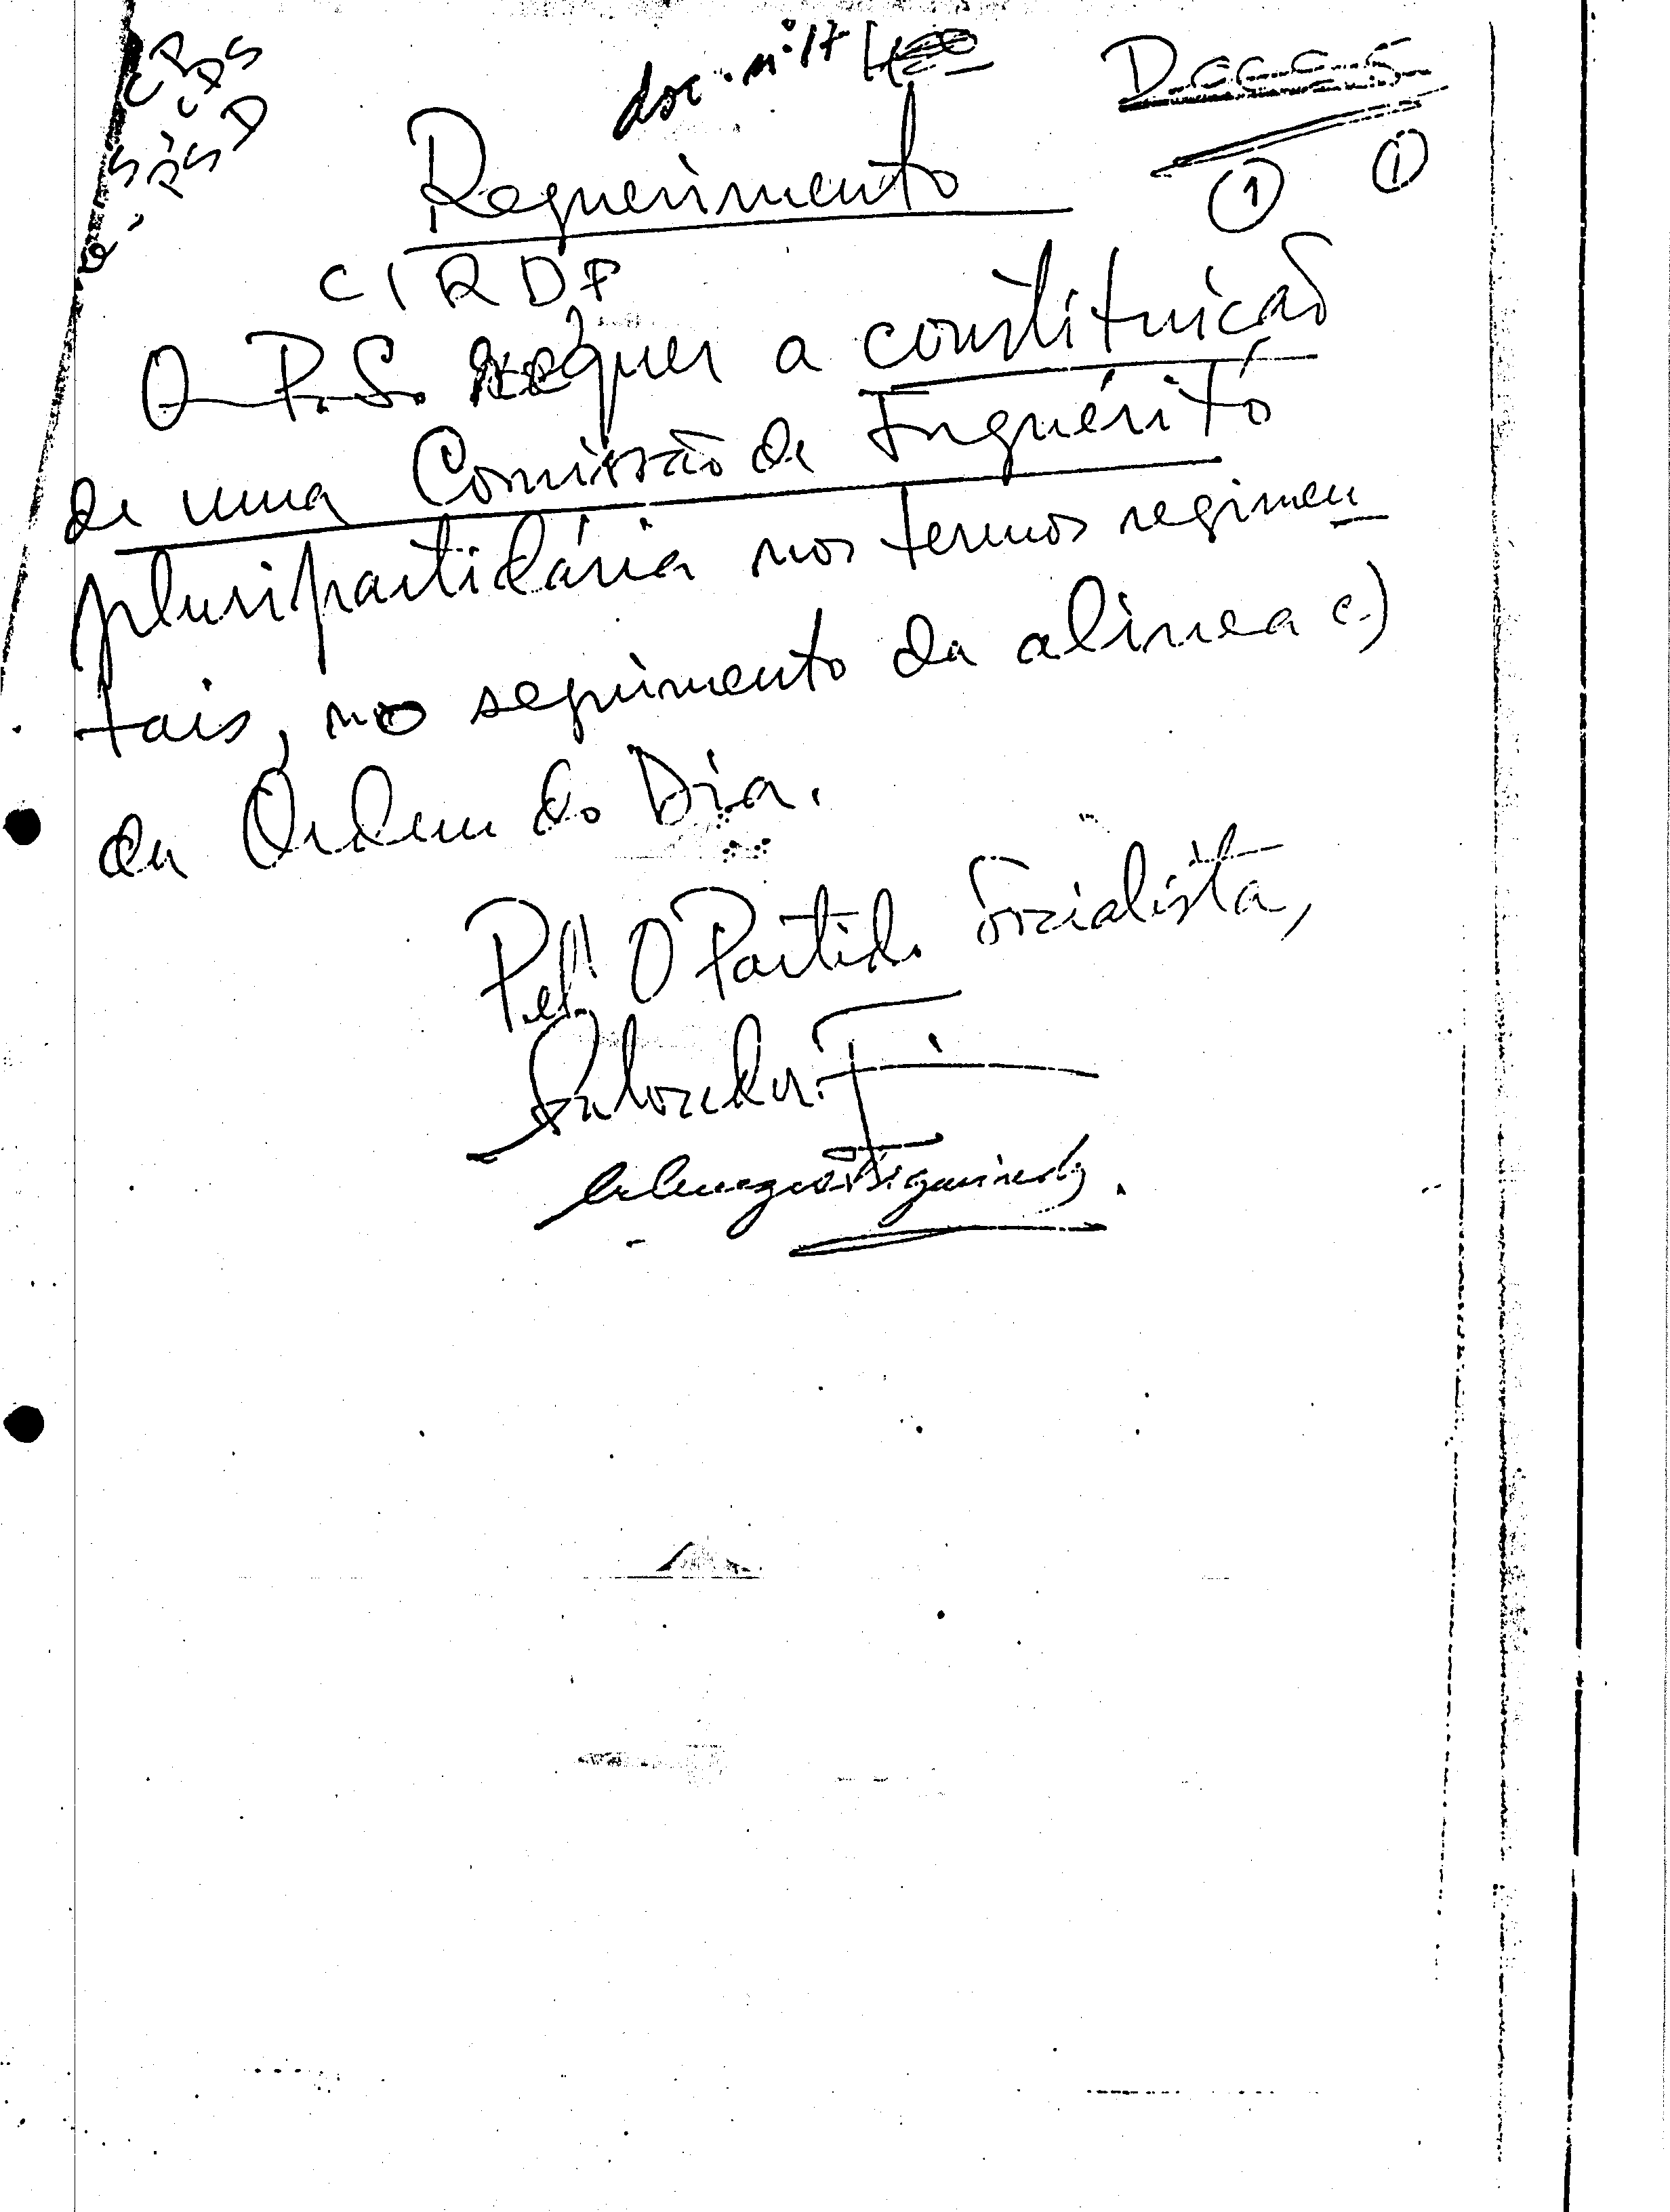 CDS
PSD
doc. nº 17
Requerimento
① ①
CIRDP
O P.S. requer a constituição
de uma Comissão de Inquérito
pluripartidária nos termos regimen
tais, no seguimento da alinea c)
da Ordem do Dia.
Pel' O Partido Socialista,